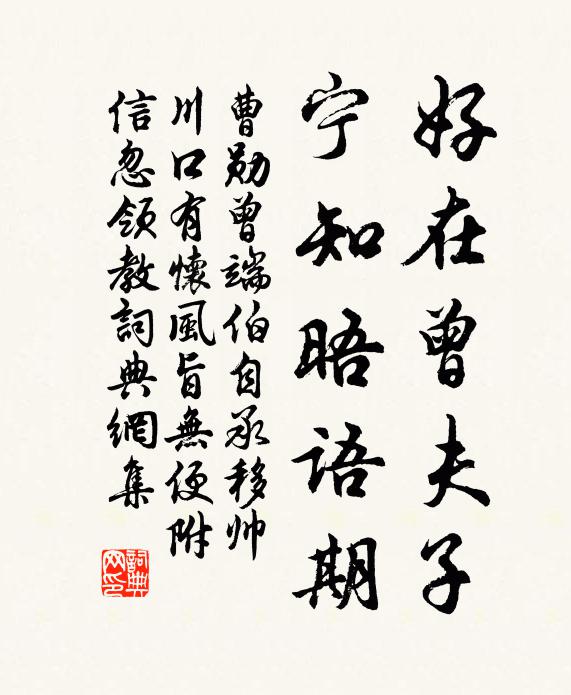 好在曾夫子
宁知晤语期
曹勛曾端伯自承移帅
川口有懷風旨無便附
信忽領教詞典網集
詞典網印